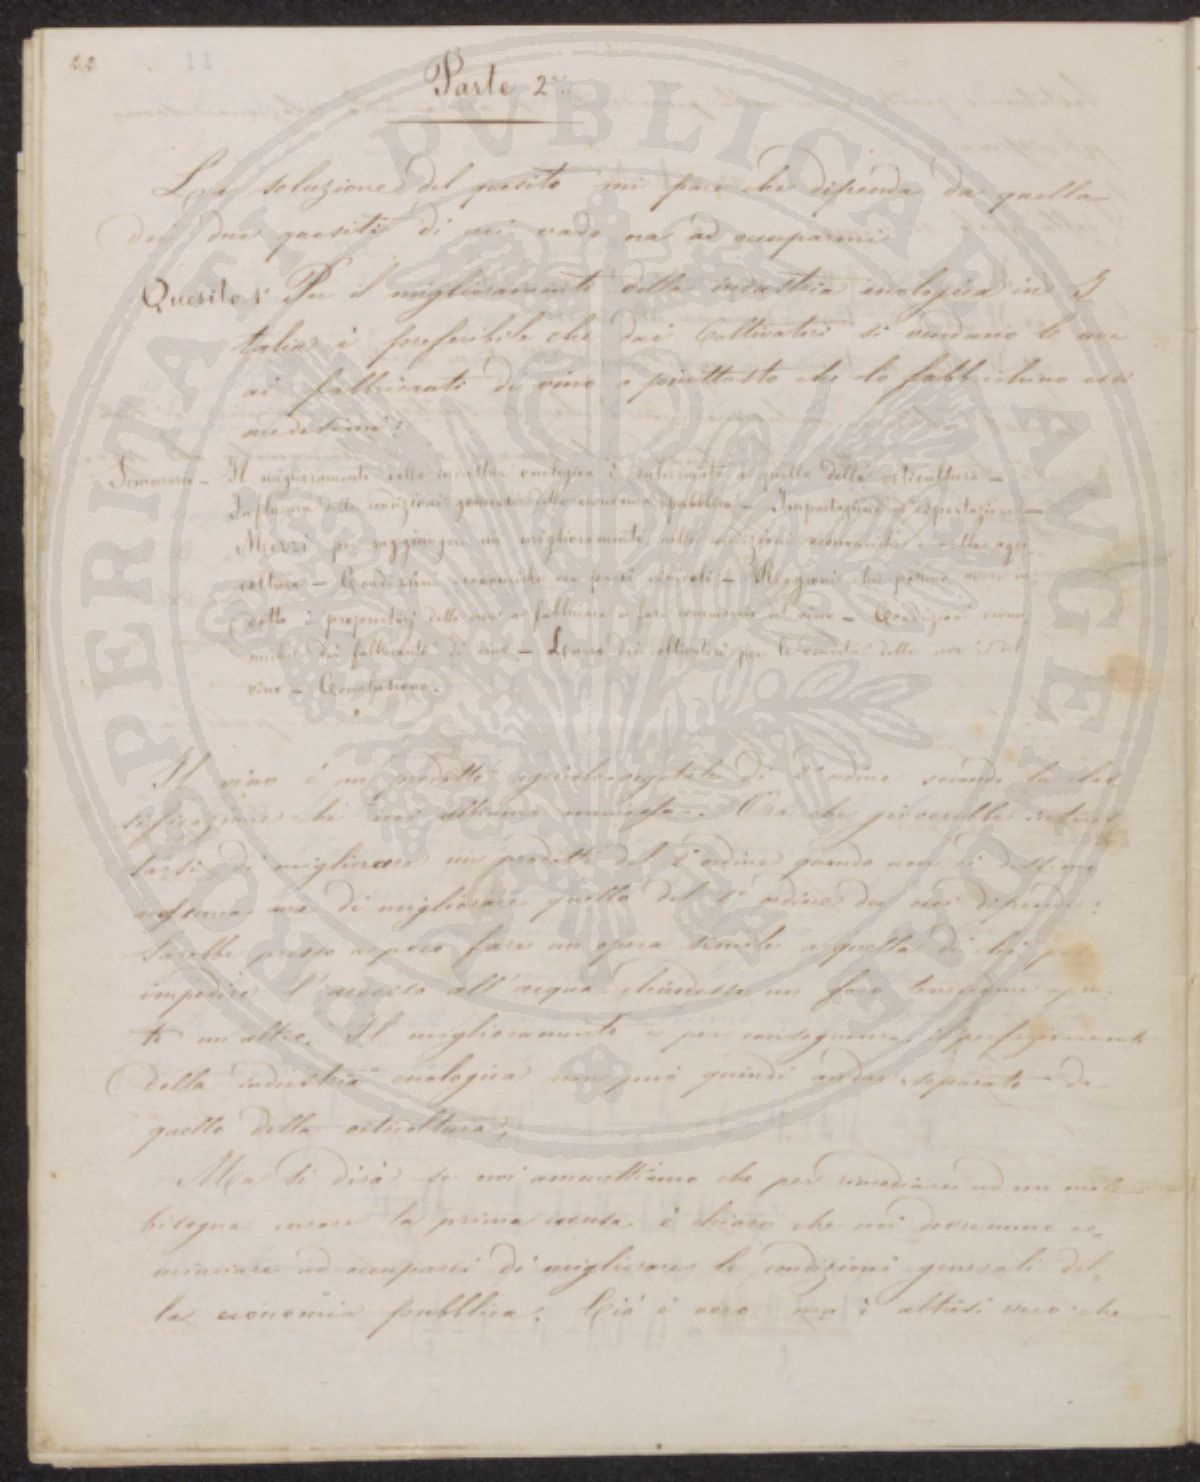 22
Parte 2ª
La soluzione del quesito mi pare che dipenda da quella
dei due quesiti di cui vado ora ad occuparmi
Quesito 1° Per il miglioramento della industria enologica in I
talia è preferibile che dai Coltivatori si vendano le uve
ai fabbricanti di vino o piuttosto che lo fabbrichino essi
medesimi?
Sommario - Il miglioramento della industria enologica è subordinato a quello della viticoltura -
Influenza delle condizioni generali della economia pubblica - Importazione ed esportazione -
Mezzi per raggiungere un miglioramento nelle condizioni economiche e nella agri
coltura - Condizioni economiche nei paesi - Ragioni che possono avere in
dotto i proprietarj delle uve a fabbricare e fare commercio di vino - Condizioni econo
miche dei fabbricanti di vino - dei coltivatori per la vendita delle uve e del
vino - Conclusione.
Il vino è un prodotto agricolo-vegetale di 2° ordine secondo la clas
sificazione che noi abbiamo . Ora che gioverebbe
di migliorare un prodotto del 2° ordine quando non ci dessimo
nessuna cura di migliorare quello del 1° ordine da cui dipende?
Sarebbe presso a poco fare un opera simile a quella di chi per
impedire l'accesso all'acqua chiudesse un foro tenendone aper
to un altro. Il miglioramento e per conseguenza il perfezionamento
della industria enologica non può quindi andar separato da
quello della viticoltura.
Ma si dirà se noi ammettiamo che per rimediare ad un male
bisogna curare la prima causa è chiaro che noi dovremmo co-
minciare ad occuparci di migliorare le condizioni generali del-
la economia pubblica. Ciò è vero ma è altresì vero che
PROSPERITATI PVBLICAE AVGENDAE